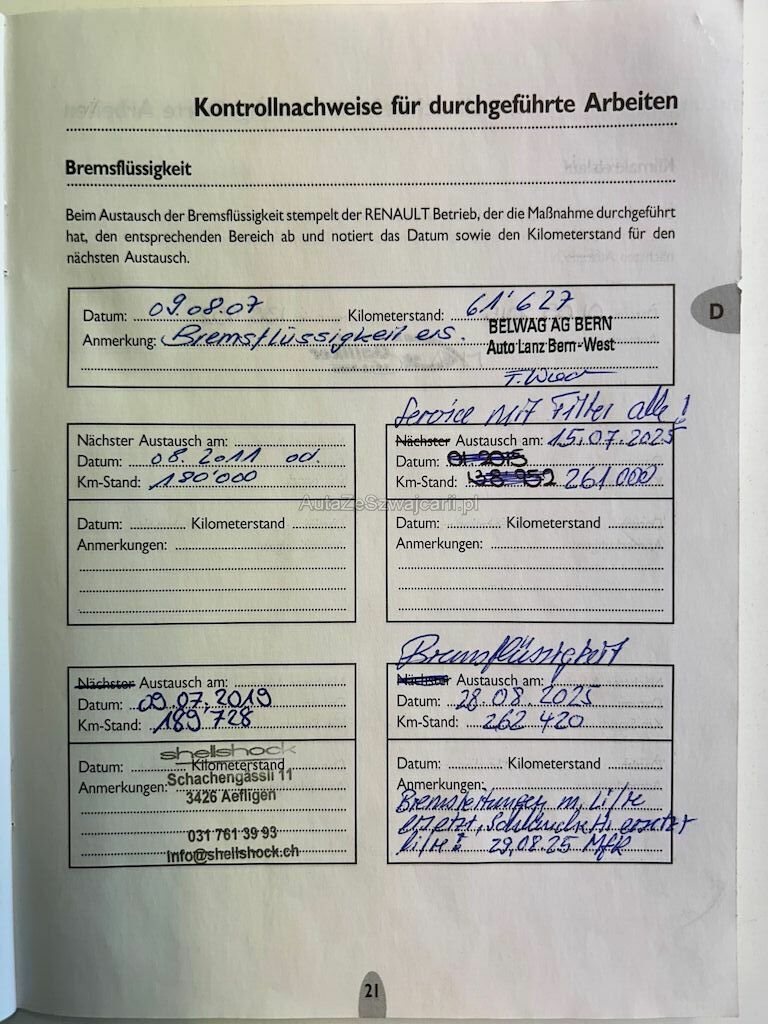 Kontrollnachweise für durchgeführte Arbeiten
Bremsflüssigkeit
Beim Austausch der Bremsflüssigkeit stempelt der RENAULT Betrieb, der die Maßnahme durchgeführt
hat, den entsprechenden Bereich ab und notiert das Datum sowie den Kilometerstand für den
nächsten Austausch.
Datum: 09.08.07 Kilometerstand: 61'627
Anmerkung: Bremsflüssigkeit ers.
BELWAG AG BERN
Auto Lanz Bern-West
D
Nächster Austausch am:
Datum: 08.2011 od.
Km-Stand: 180'000
Datum: Kilometerstand
Anmerkungen:
Service mit Filter alle!
Nächster Austausch am: 15.07.2025
Datum: 01.2015
Km-Stand: 261 000
Datum: Kilometerstand
Anmerkungen:
AutaZeSzwajcarii.pl
Nächster Austausch am:
Datum: 09.07.2019
Km-Stand: 189'728
Datum: Kilometerstand
Anmerkungen:
shellshock
Schachengässli 11
3426 Aefligen
031 761 39 93
info@shellshock.ch
Bremsflüssigkeit
Nächster Austausch am:
Datum: 28.08.2025
Km-Stand: 262 420
Datum: Kilometerstand
Anmerkungen:
Bremsleitungen m. li/re
ersetzt, ersetzt
li/re 29.08.25 MfK
21